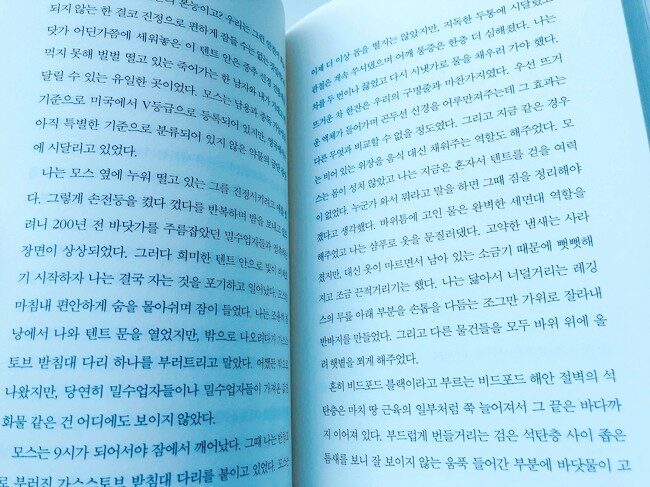 되지 않는 한 결코 진정으로 편하게 잠들 수는 없는
닷가 어딘가쯤에 세워놓은 이 텐트 안은 중추 신경
먹지 못해 벌벌 떨고 있는 죽어가는 한 남자와 내가
달릴 수 있는 유일한 곳이었다. 모스는 남용과 중독
기준으로 미국에서 V등급으로 등록되어 있지만,
아직 특별한 기준으로 분류되어 있지 않은 약물의
에 시달리고 있었다.
나는 모스 옆에 누워 떨고 있는 그를 진정시키려고
다. 그렇게 손전등을 켰다 껐다를 반복하며 밤을 보내고
려니 200년 전 바닷가를 주름잡았던 밀수업자들과
장면이 상상되었다. 그러다 희미한 텐트 안으로 빛이
기 시작하자 나는 결국 자는 것을 포기하고 일어났다.
마침내 편안하게 숨을 몰아쉬며 잠이 들었다. 나는
낭에서 나와 텐트 문을 열었지만, 밖으로 나오려다가
토브 받침대 다리 하나를 부러트리고 말았다. 어쨌든 밖으로
나왔지만, 당연히 밀수업자들이나 밀수업자들이 가져온
화물 같은 건 어디에도 보이지 않았다.
모스는 9시가 되어서야 잠에서 깨어났다. 그때 나는
로 부러진 가스스토브 받침대 다리를 붙이고 있었다.
이제 더 이상 몸을 떨지는 않았지만, 지독한 두통에 시달렸고
관절은 계속 쑤셔댔으며 어깨 통증은 한층 더 심해졌다. 나는
차를 두 번이나 끓였고 다시 시냇가로 물을 채우러 가야 했다.
뜨거운 차 한잔은 우리의 구명줄과 마찬가지였다. 우선 뜨거
운 액체가 들어가며 곤두선 신경을 어루만져주는데 그 효과는
다른 무엇과 비교할 수 없을 정도였다. 그리고 지금 같은 경우
는 비어 있는 위장을 음식 대신 채워주는 역할도 해주었다. 모
스는 몸이 성치 않았고 나는 지금은 혼자서 텐트를 걷을 여력
이 없었다. 누군가 와서 뭐라고 말을 하면 그때 짐을 정리해야
겠다고 생각했다. 바위틈에 고인 물은 완벽한 세면대 역할을
해주었고 나는 샴푸로 옷을 문질러댔다. 고약한 냄새는 사라
졌지만, 대신 옷이 마르면서 남아 있는 소금기 때문에 뻣뻣해
지고 조금 끈적거리기는 했다. 나는 닳아서 너덜거리는 레깅
스의 무릎 아래 부분을 손톱을 다듬는 조그만 가위로 잘라내
반바지를 만들었다. 그리고 다른 물건들을 모두 바위 위에 올
려 햇볕을 쬐게 해주었다.
흔히 비드포드 블랙이라고 부르는 비드포드 해안 절벽의 석
탄층은 마치 땅 근육의 일부처럼 쭉 늘어져서 그 끝은 바다까
지 이어져 있다. 부드럽게 번들거리는 검은 석탄층 사이 좁은
틈새를 보니 잘 보이지 않는 움푹 들어간 부분에 바닷물이 고